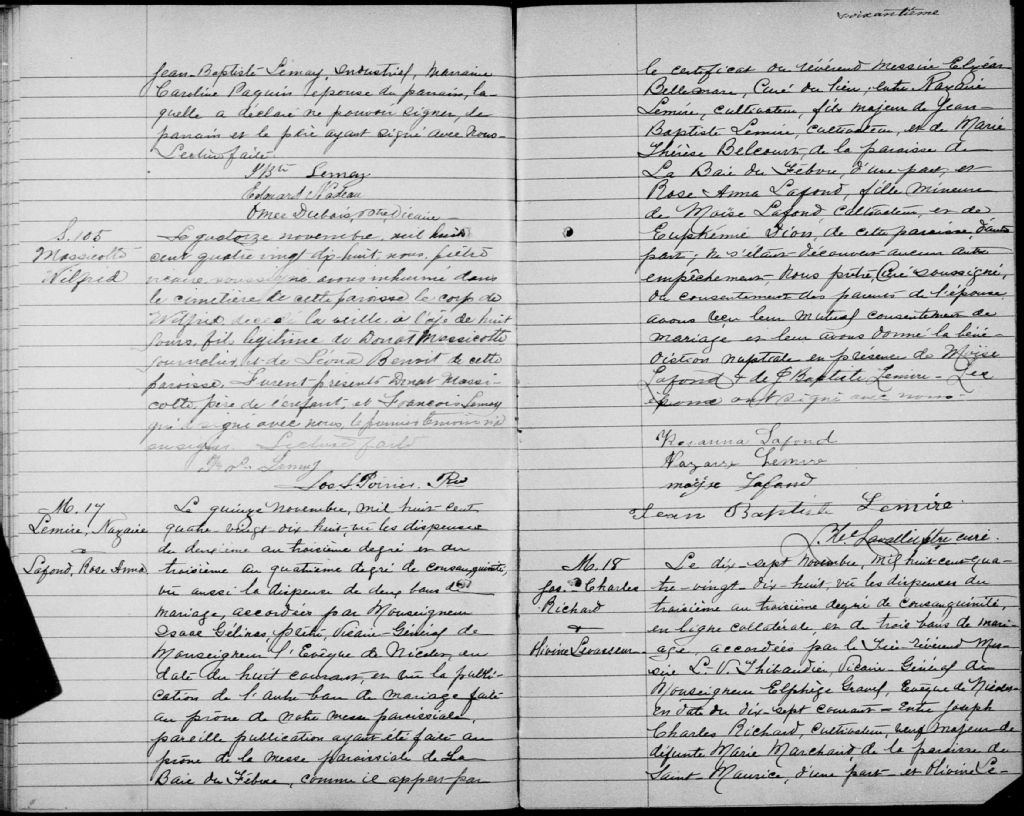 Jean-Baptiste Lemay, Industriel, Marraine
Caroline Paquin épouse du parrain, la-
quelle a déclaré ne pouvoir signer, le
parrain et le père ayant signé avec nous.
Lecture faite.
J Bte Lemay
Edouard Nadeau
Omer Dubois, Vicaire
S. 105
Massicotte
Wilfrid
Le quatorze novembre, mil huit
cent quatre vingt dix huit, nous, prêtre
vicaire, soussigné, avons inhumé dans
le cimetière de cette paroisse le corps de
Wilfrid décédé la veille, à l'age de huit
jours, fils légitime de Donat Massicotte
journalier, et de Léona Benoit de cette
paroisse. Furent présents Donat Massi-
cotte, père de l'enfant, et François Lemay
qui a signé avec nous, le premier témoin n'a
su signer. Lecture faite
Lemay
Jos L. Poirier, Ptre
M. 17
Lemire, Nazaire
&
Lafond, Rose Anna
Le quinze novembre, mil huit cent
quatre-vingt dix huit, vu les dispenses
du deuxième au troisième degré et du
troisième au quatrième degré de consanguinité,
vu aussi la dispense de deux bans de
mariage, accordées par Monseigneur
Isaac Gélinas, prêtre, Vicaire-Général de
Monseigneur l'Evêque de Nicolet, en
date du huit courant, en vu la publi-
cation de l'autre ban de mariage faite
au prône de notre messe paroissiale,
pareille publication ayant été faite au
prône de la messe paroissiale de La
Baie du Fèbvre, comme il appert par
soixantième
le certificat du révérend Messire Elzéar
Bellemare, Curé du lieu, entre Nazaire
Lemire, cultivateur, fils majeur de Jean-
Baptiste Lemire, cultivateur, et de Marie
Thérèse Belcourt, de la paroisse de
La Baie du Fèbvre, d'une part, et
Rose Anna Lafond, fille mineure
de Moïse Lafond, cultivateur, et de
Euphémie Dion, de cette paroisse, d'autre
part; ne s'étant découvert aucun autre
empêchement, Nous prêtre, Curé soussigné,
du consentement des parents de l'épouse,
avons reçu leur mutuel consentement de
mariage et leur avons donné la béné-
diction nuptiale en présence de Moïse
Lafond & de J Baptiste Lemire - Les
époux ont signé avec nous.
Rosanna Lafond
Nazaire Lemire
moïse Lafond
Jean Baptiste Lemire
Lavallée Ptre curé.
M. 18
Jos. Charles
Richard
&
Olivine Levasseur
Le dix-sept Novembre, mil huit cent qua-
tre-vingt dix-huit, vu les dispenses du
troisième au troisième degré de consanguinité,
en ligne collatérale et de trois bans de mari-
age, accordées par le Très-révérend Mes-
sire L. V. Thibaudier, Vicaire-Général de
Monseigneur Elphège Gravel, Evêque de Nicolet
en date du dix-sept courant - Entre Joseph
Charles Richard, Cultivateur, veuf majeur de
défunte Marie Marchand, de la paroisse de
Saint Maurice, d'une part - et Olivine Le-